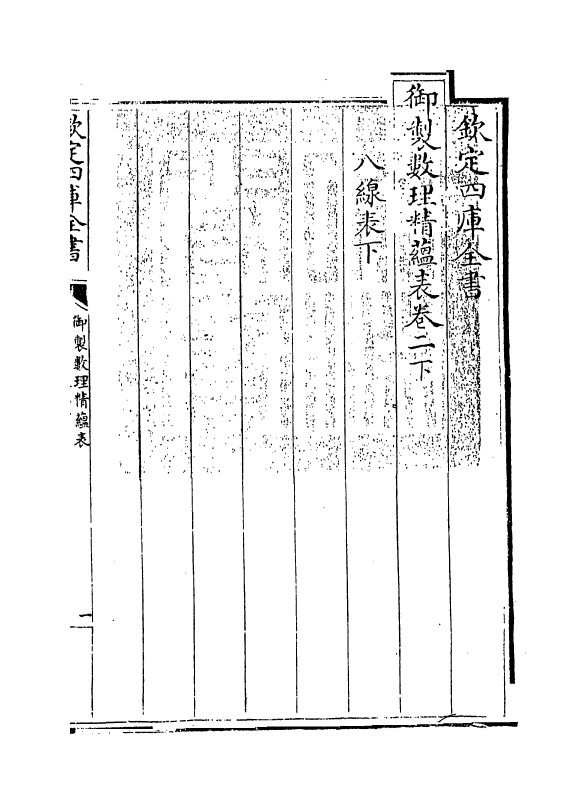 欽定四庫全書
御製數理精蘊表卷二下
八線表下
欽定四庫全書
御製數理精蘊表
一